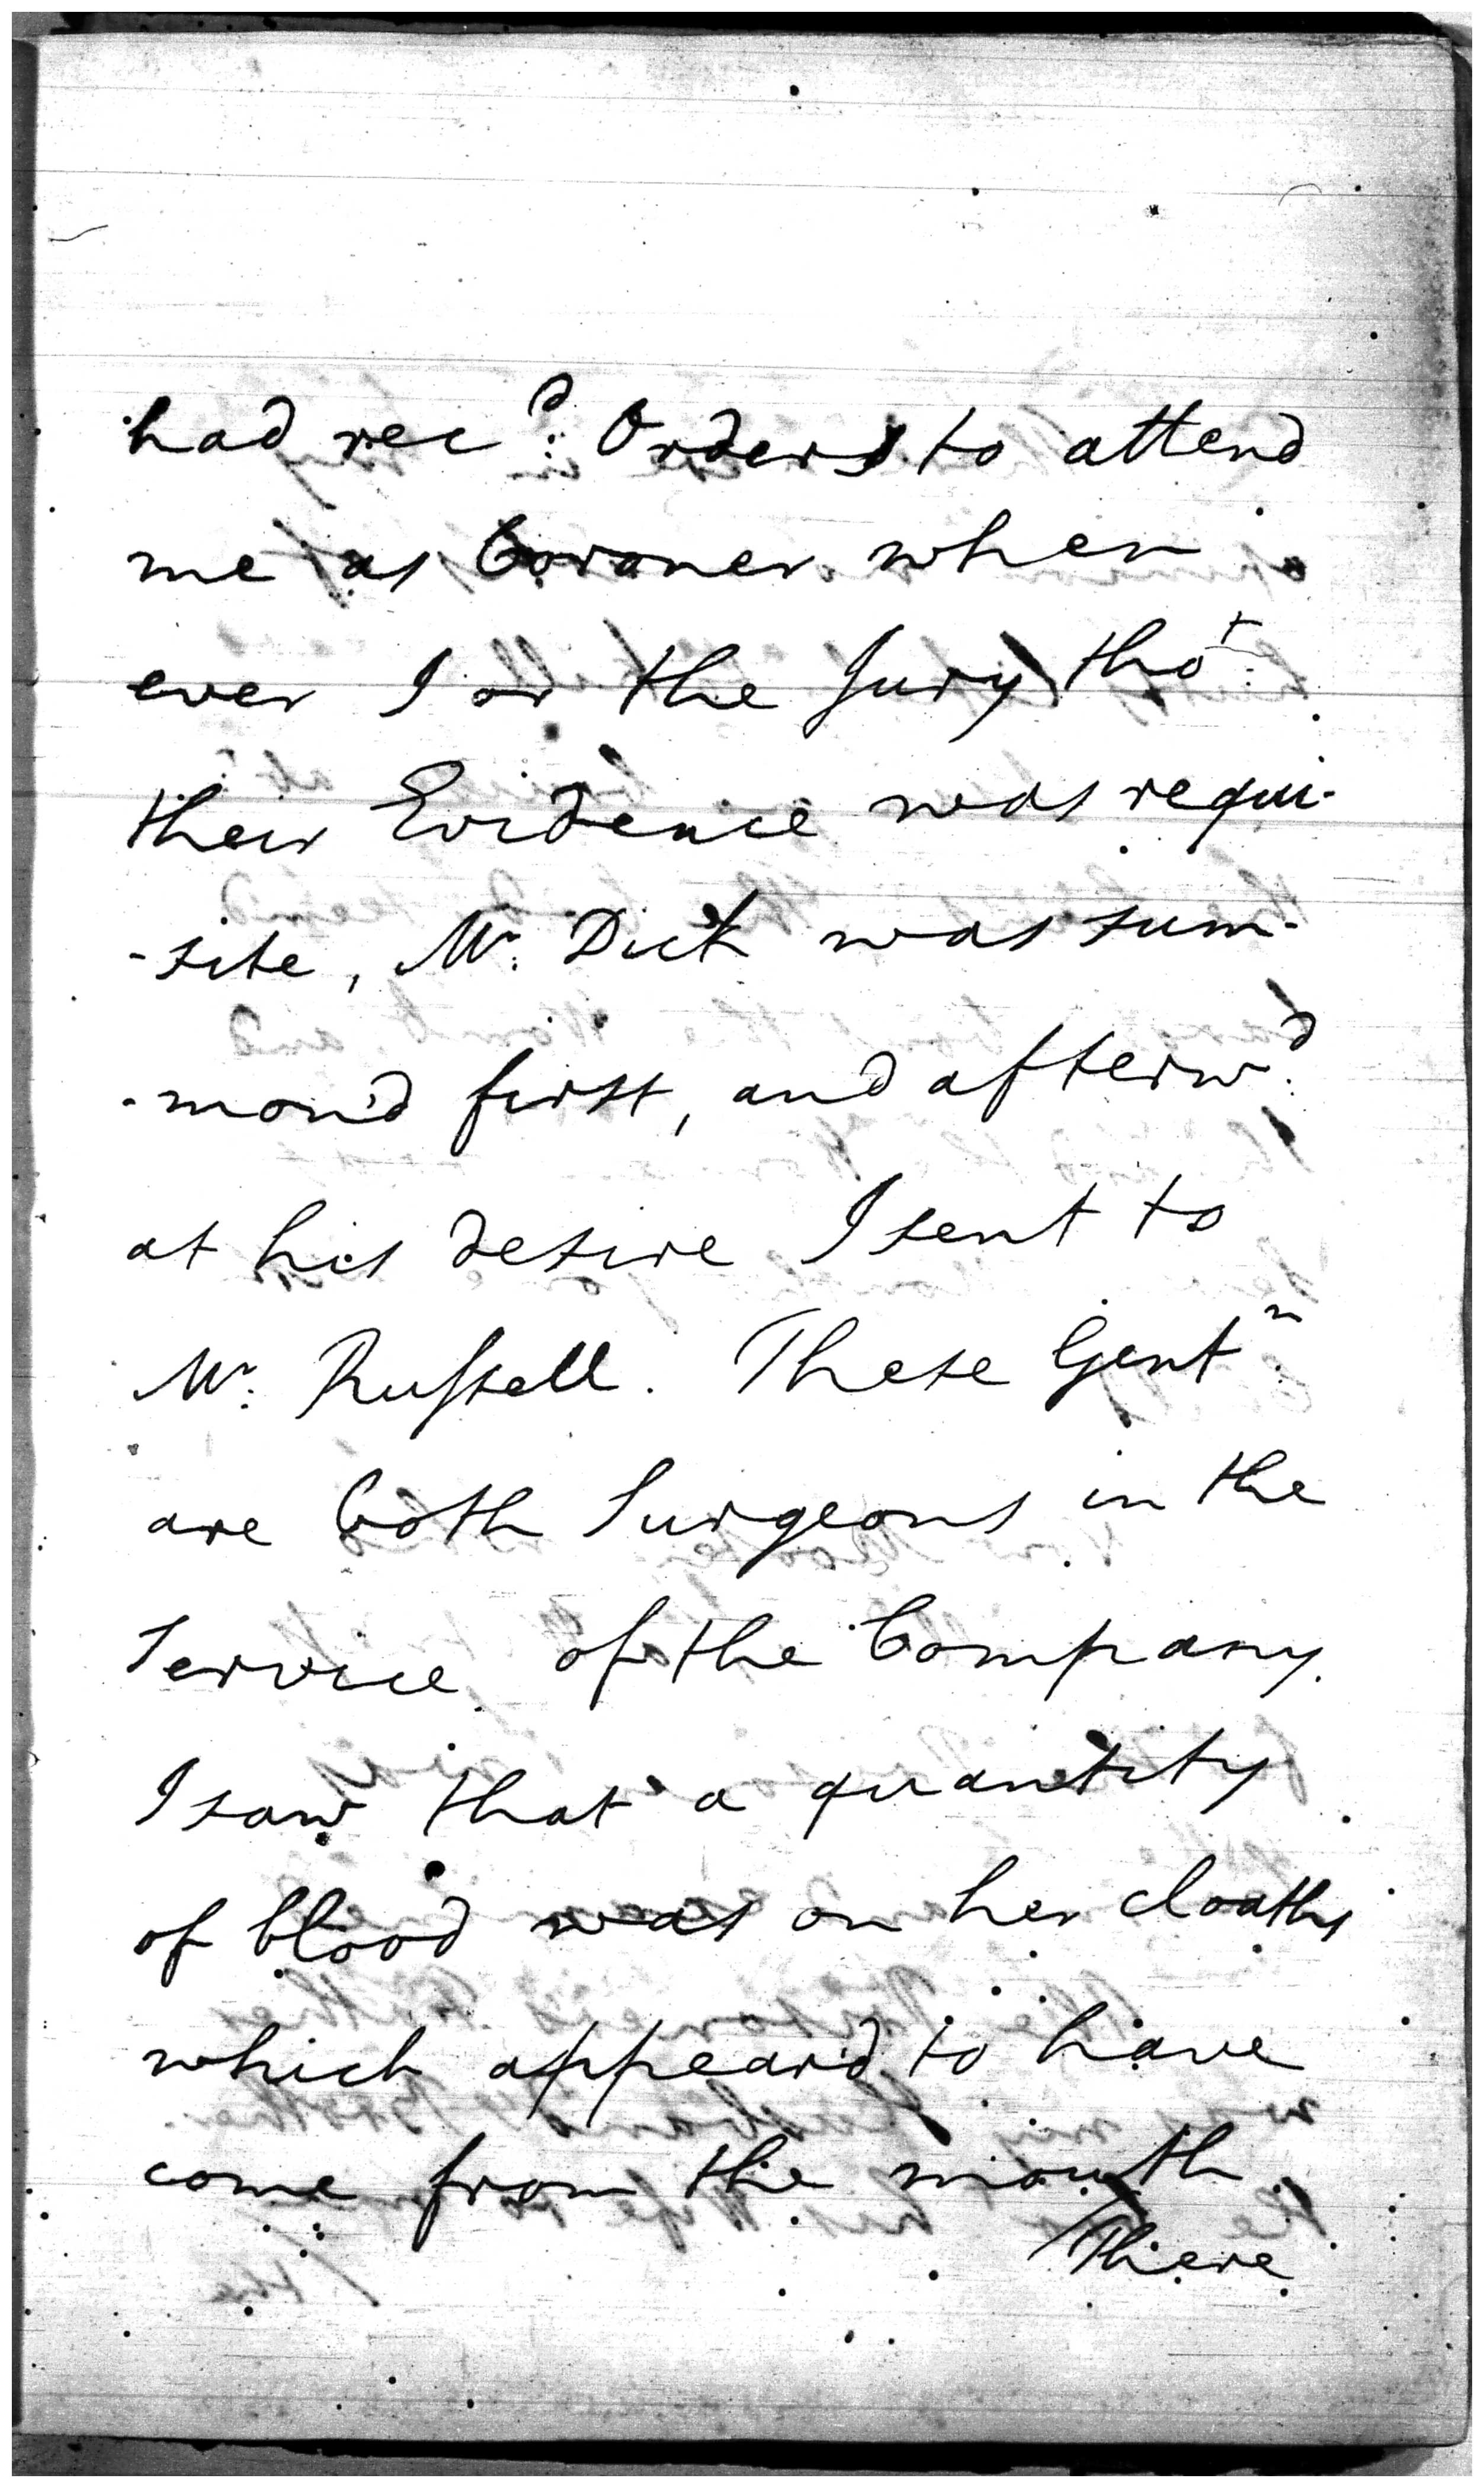 had rec.d Orders to attend
me as Coroner when
ever I or the Jury tho.t
their Evidence was requi-
-site, Mr. Dick was sum-
-mon'd first, and afterw.d
at his desire I sent to
Mr. Russell. These Gent.n
are both Surgeons in the
Service of the Company.
I saw that a quantity
of blood was on her cloaths
which appear'd to have
come from the mouth.
There